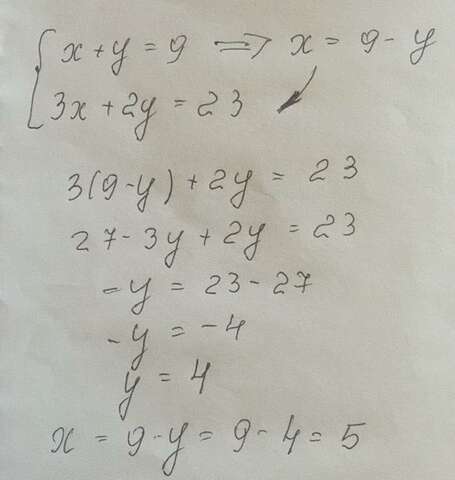 x + y = 9 ⟹ x = 9 - y
3x + 2y = 23
3(9 - y) + 2y = 23
27 - 3y + 2y = 23
-y = 23 - 27
-y = -4
y = 4
x = 9 - y = 9 - 4 = 5